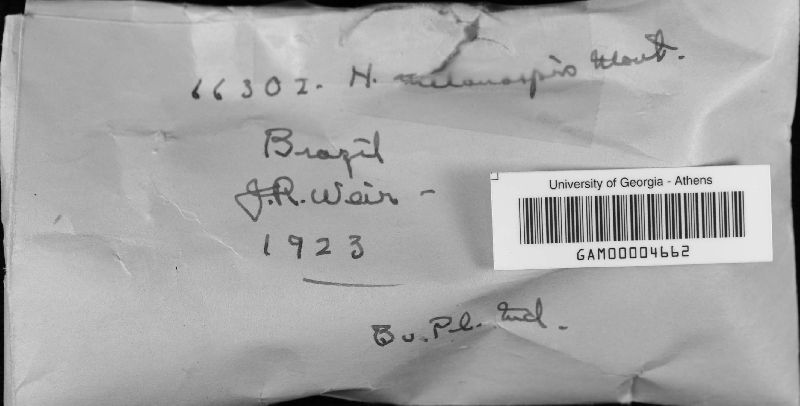 66302. H. melanaspis Mont.
Brazil
J.R. Weir -
1923
University of Georgia - Athens
GAM00004662
Bu. Pl. Ind.